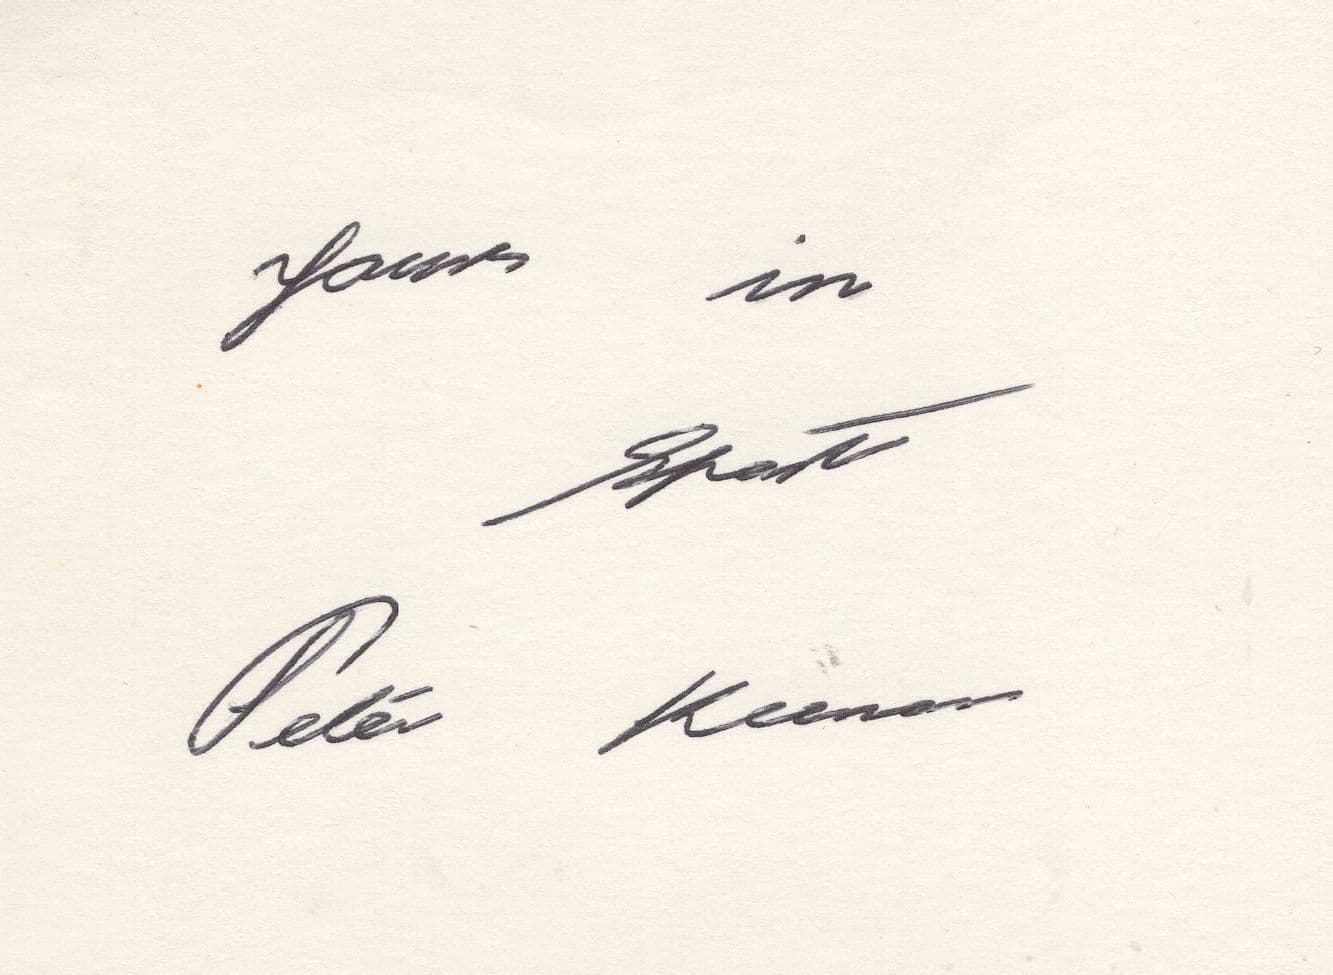 Yours in
Sport
Peter Keenan